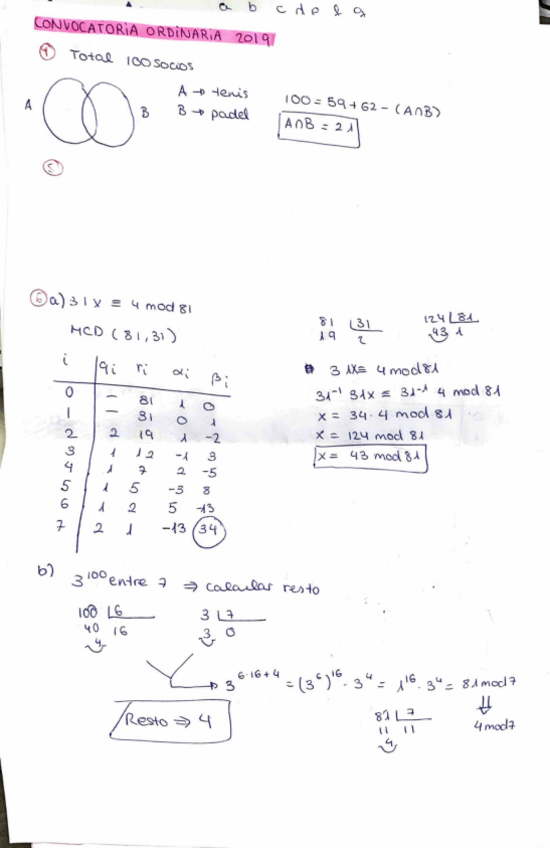 a b c d e f g
CONVOCATORIA ORDINARIA 2019
4 Total 100 socios
A → tenis
B → padel
A B
100 = 59 + 62 - (A∩B)
A∩B = 21
5
6 a) 31x ≡ 4 mod 81
MCD (81, 31)
i qi ri αi βi
0 - 81 1 0
1 - 31 0 1
2 2 19 1 -2
3 1 12 -1 3
4 1 7 2 -5
5 1 5 -3 8
6 1 2 5 -13
7 2 1 -13 34
81 31
19 2
124 81
43 1
31x ≡ 4 mod 81
31⁻¹ 31x ≡ 31⁻¹ 4 mod 81
x = 34·4 mod 81
x = 124 mod 81
x = 43 mod 81
b) 3¹⁰⁰ entre 7 ⇒ calcular resto
100 6
40 16
4
3 7
3 0
→ 3⁶·¹⁶⁺⁴ = (3⁶)¹⁶ · 3⁴ = 1¹⁶ · 3⁴ = 81 mod 7
⇓
4 mod 7
81 7
11 11
4
Resto ⇒ 4